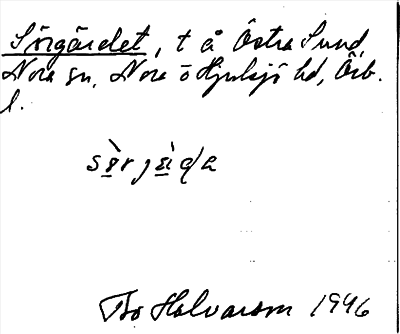 Sörgärdet, t å Östra Sund,
Nora sn, Nora o Hjulsjö hd, Örb.
l.
Bo Halvarson 1946